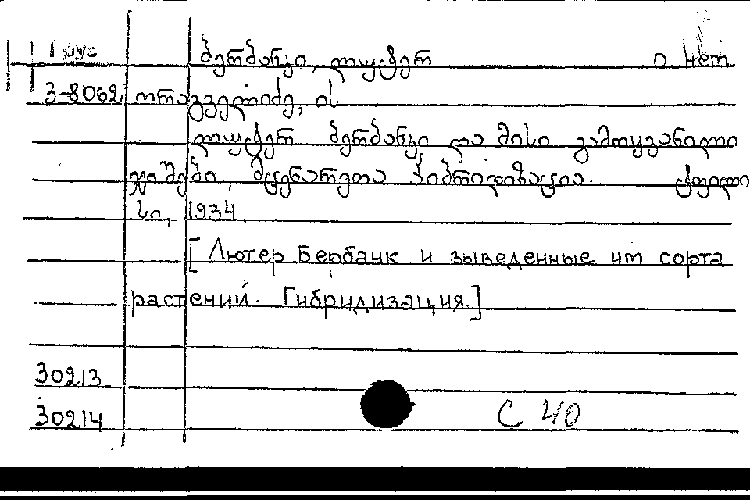 ბერბანკი, ლუტერ о нем
3-8062 ორაგველიძე, ის.
ლუტერ ბერბანკი და მისი გამოყვანილი
ჯიშები. მცენარეთა ჰიბრიდიზაცია.
სი, 1934.
[Лютер Бербанк и зыведенные им сорта
растений. Гибридизация.]
30213
30214 С 40